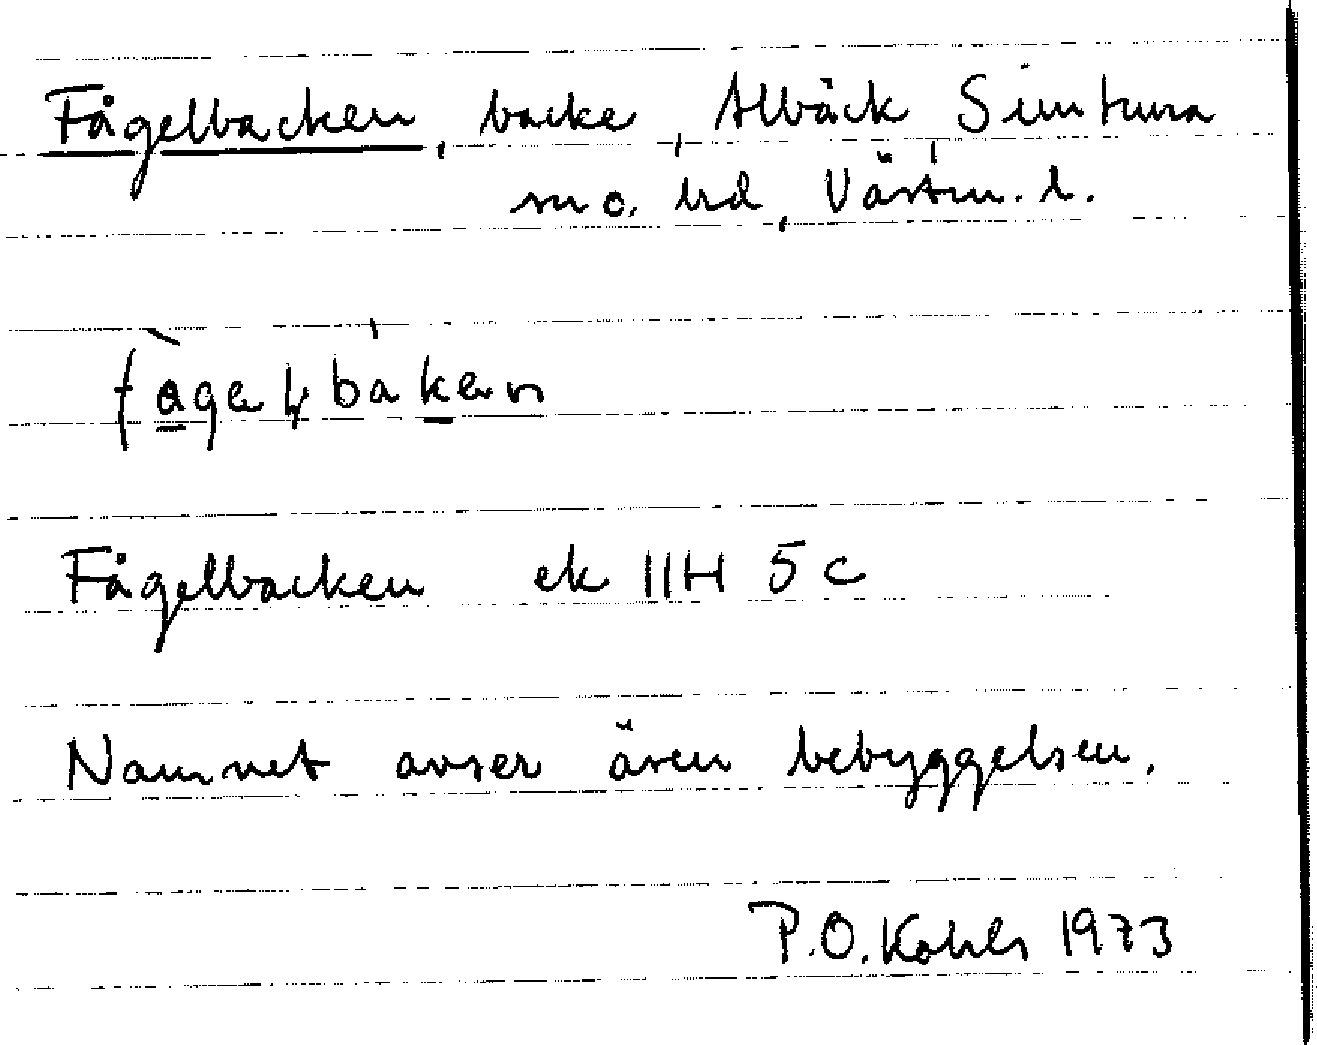 Fågelbacken, backe, Albäck, Simtuna
sn o. hd, Västm. l.
Fågelbacken ek 11H 5c
Namnet avser även bebyggelsen.
P.O. Kohls 1973